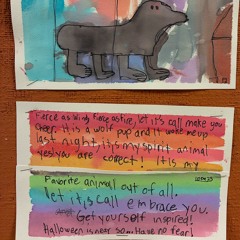 Fierce as Wind, Fierce as fire, let it's call make you
cheer. It is a wolf pup and it woke me up
last night, it is my spirit animal
yes! you are correct! It is my
Favorite animal out of all.
Let it's call embrace you.
Get yourself inspired!
Halloween is near so... Have no fear!